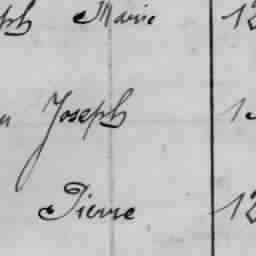 Marie 12
Joseph
Pierre 12